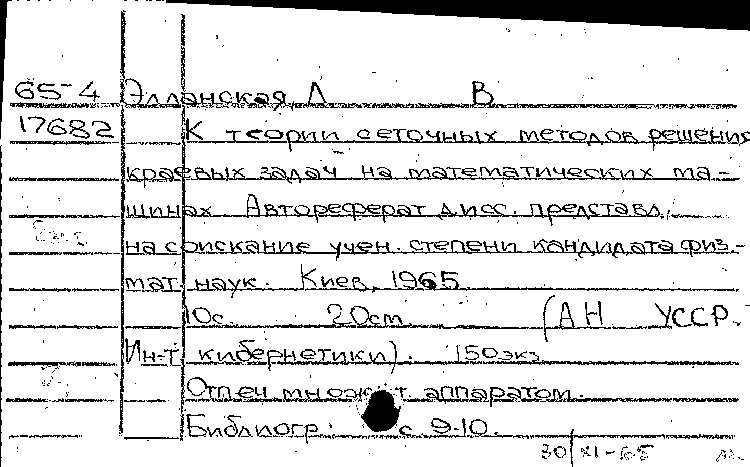 65-4 Элланская, Л В
17682 К теории сеточных методов решения
краевых задач на математических ма-
шинах. Автореферат дисс. представл.
на соискание учен. степени кандидата физ.-
мат. наук. Киев, 1965.
10с. 20см (АН УССР.
Ин-т кибернетики). 150экз.
Отпеч множит. аппаратом.
Библиогр: с 9-10.
30/XI-65